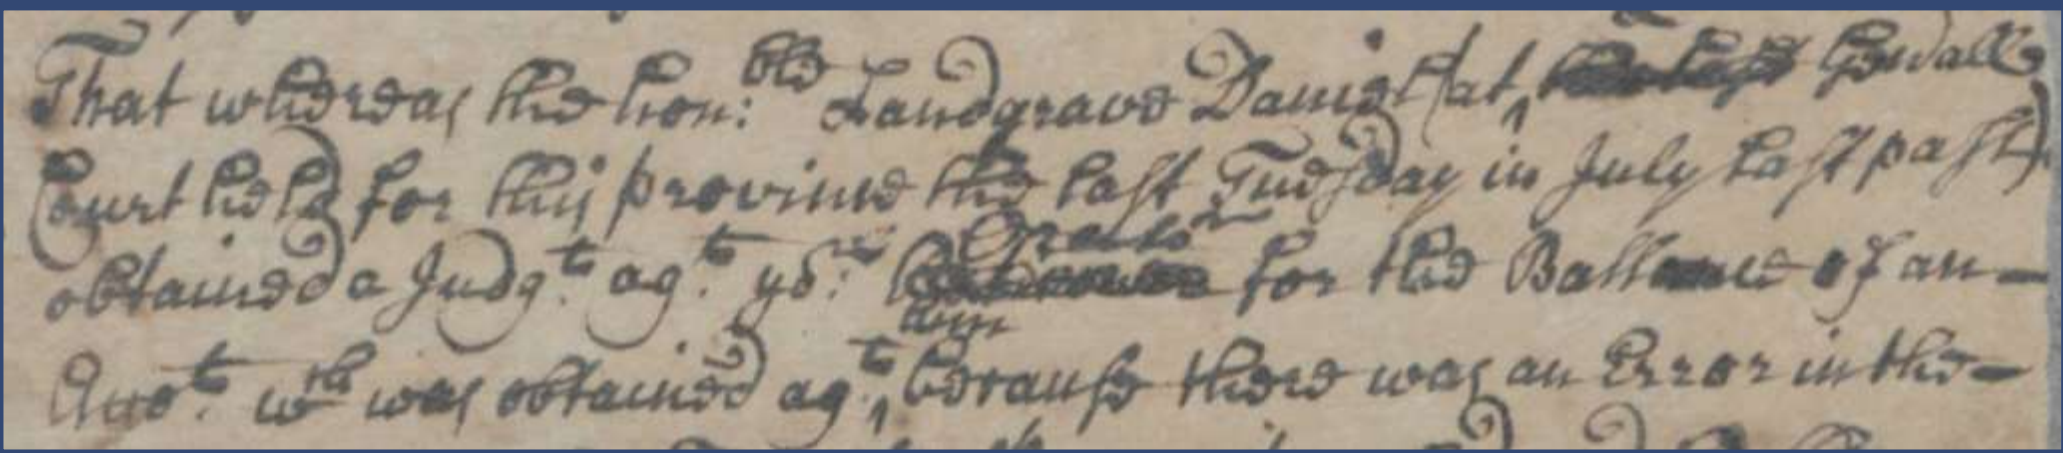 That whereas the hon:ble Landgrave Daniel at Genall
Court held for this province the last Tuesday in July last past
obtained a Judgt. agt. yor. Orator for the Ballance of an
Acco.t wch was obtained agt. him because there was an Error in the